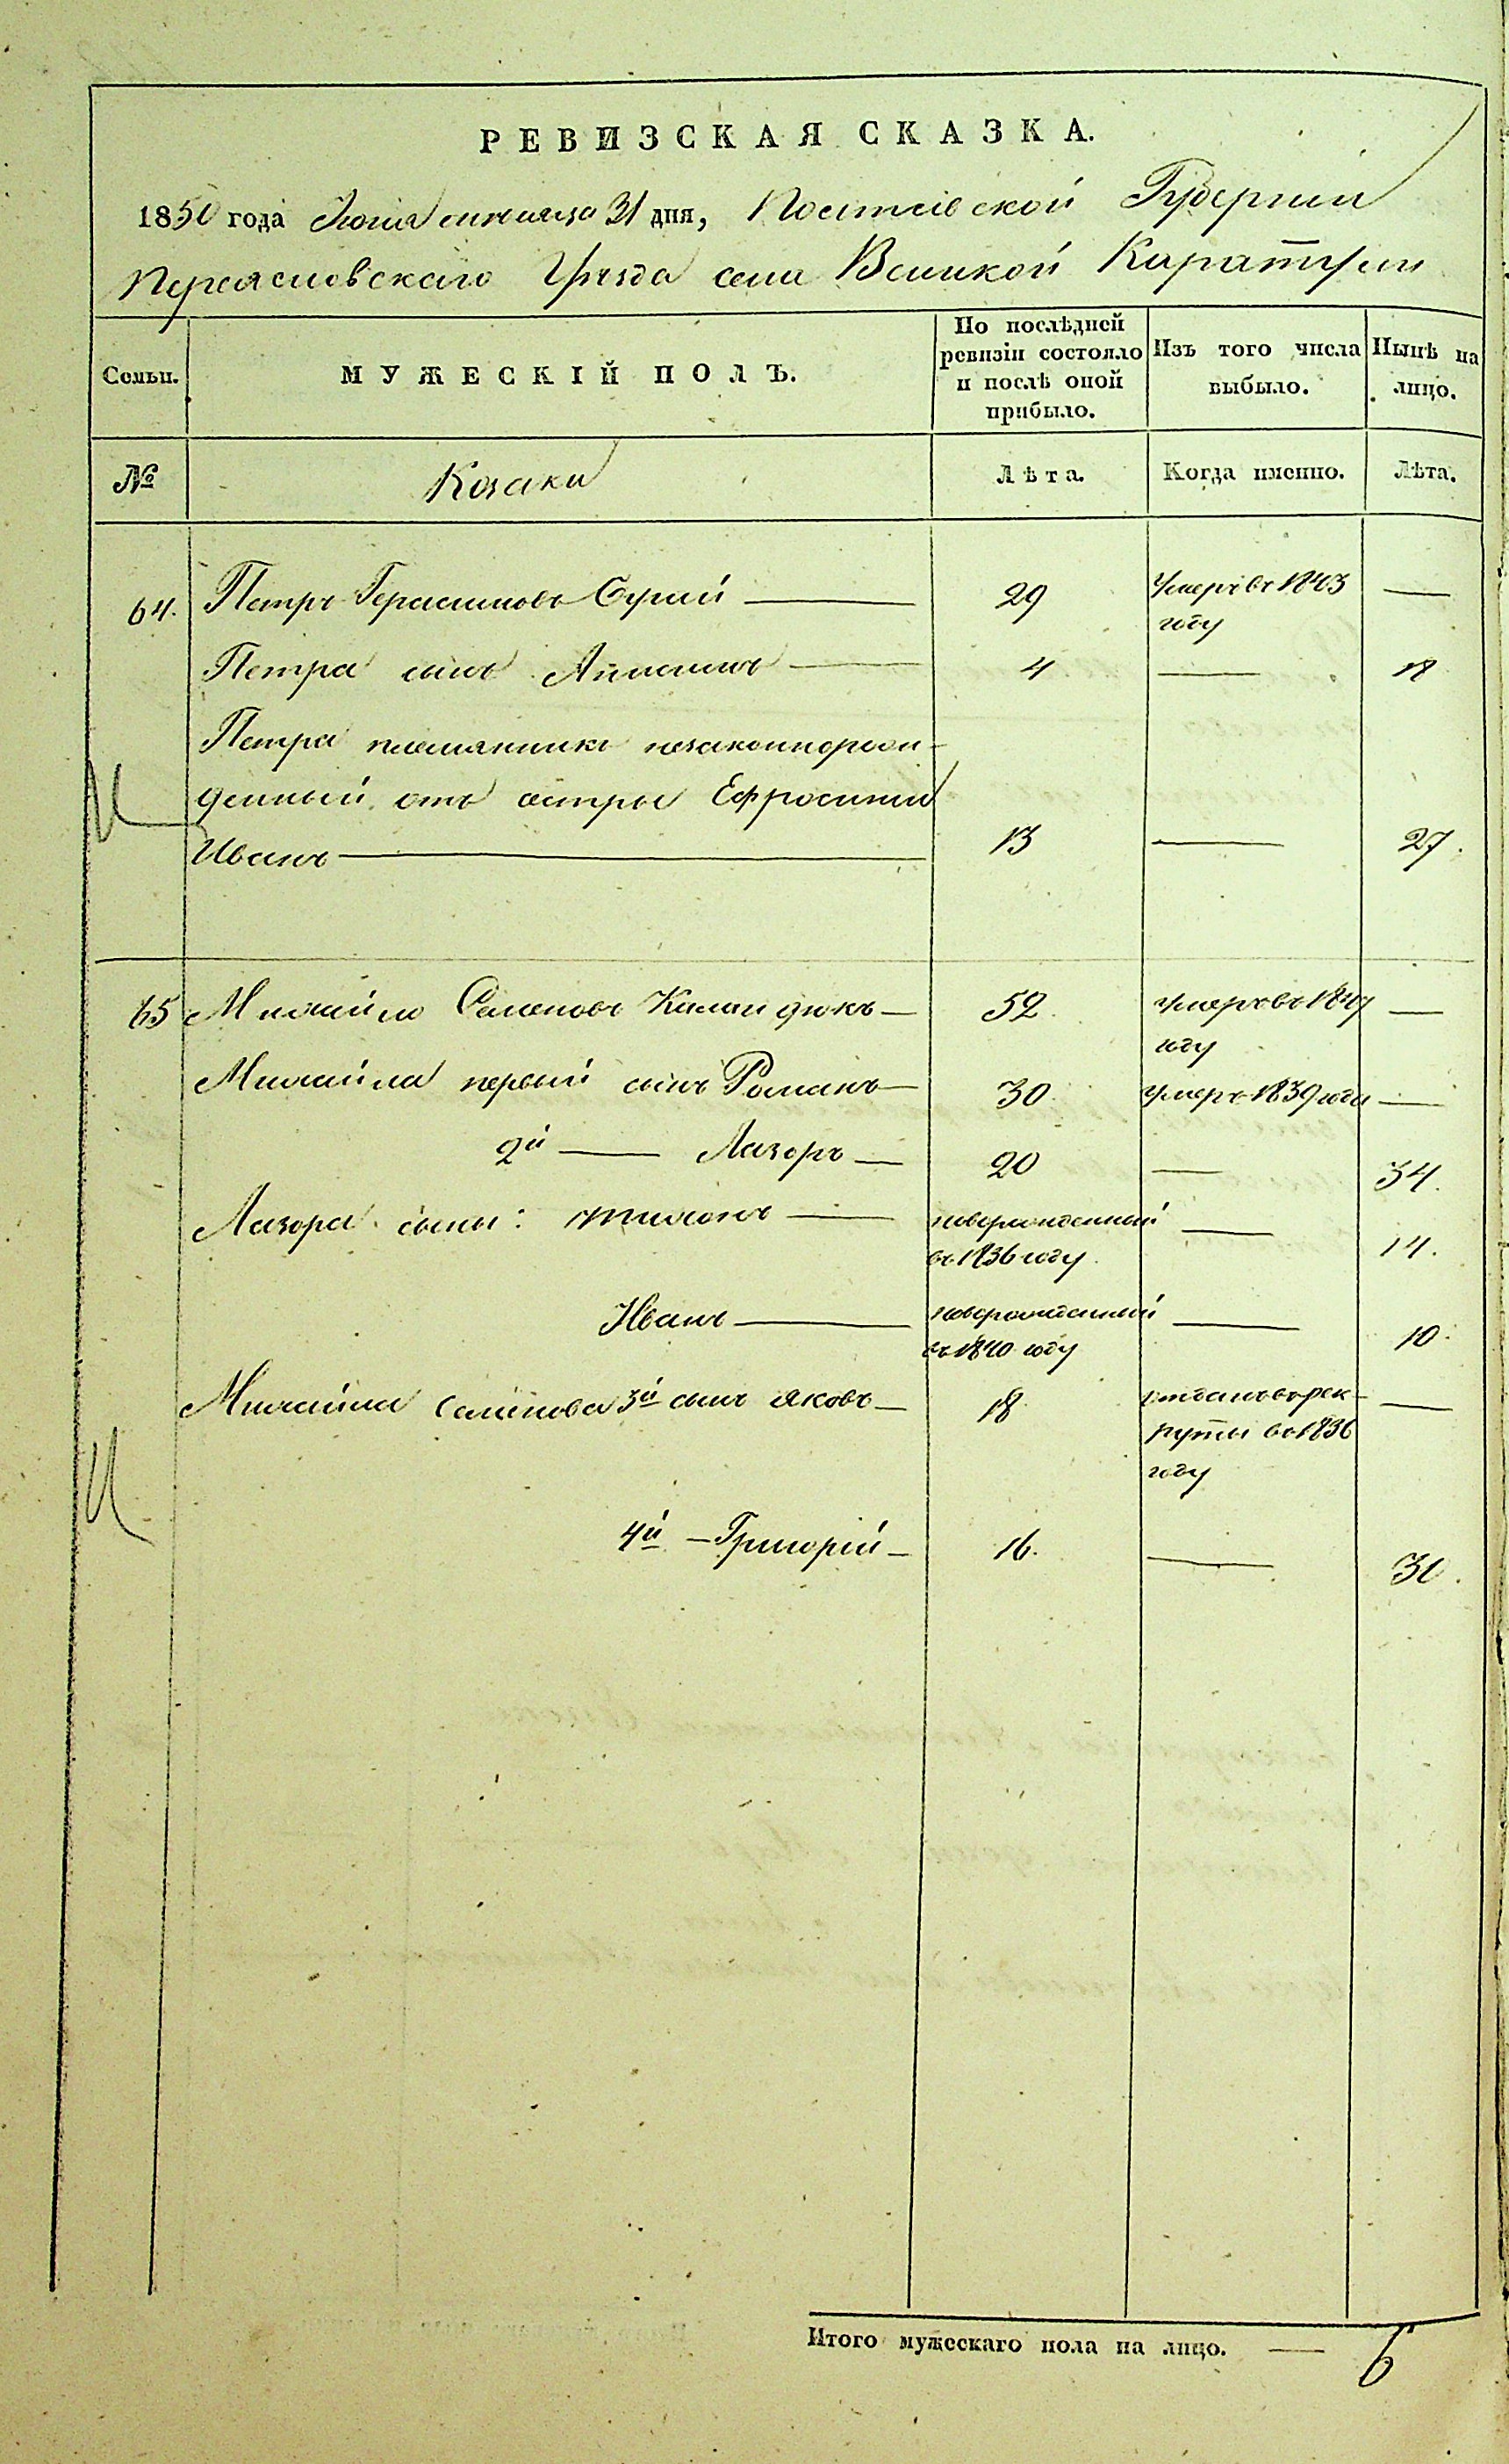 РЕВИЗСКАЯ СКАЗКА.
1850 года Июля месяца 31 дня, Полтавской Губерніи
Переясловскаго Уѣзда села Великой Каратули
Семьи. МУЖЕСКІЙ ПОЛЪ. По послѣдней ревизіи состояло и послѣ оной прибыло. Изъ того числа выбыло. Нынѣ на лицо.
№ Козаки Лѣта. Когда именно. Лѣта.
64. Петръ Герасимовъ 29 Умеръ въ 1843 году —
Петра сынъ 4 — 18
Петра племянникъ незаконнорож-
денный отъ сестры Ефросиніи
Иванъ 13 — 27.
65 Михайло Семеновъ Калайдюкъ 52. Умеръ въ 1847 году —
Михайла первый сынъ Романъ 30. умеръ 1839 года —
2й — Лазоръ 20 — 34.
Лазора сыны: Тихонъ новорожденный въ 1836 году — 14.
Иванъ новорожденный въ 1840 году — 10.
Михайла Семенова 3й сынъ Яковъ 18. отданъ въ рек-
руты въ 1836
году —
4й — Григорій 16. — 30.
Итого мужескаго пола на лицо. — 6